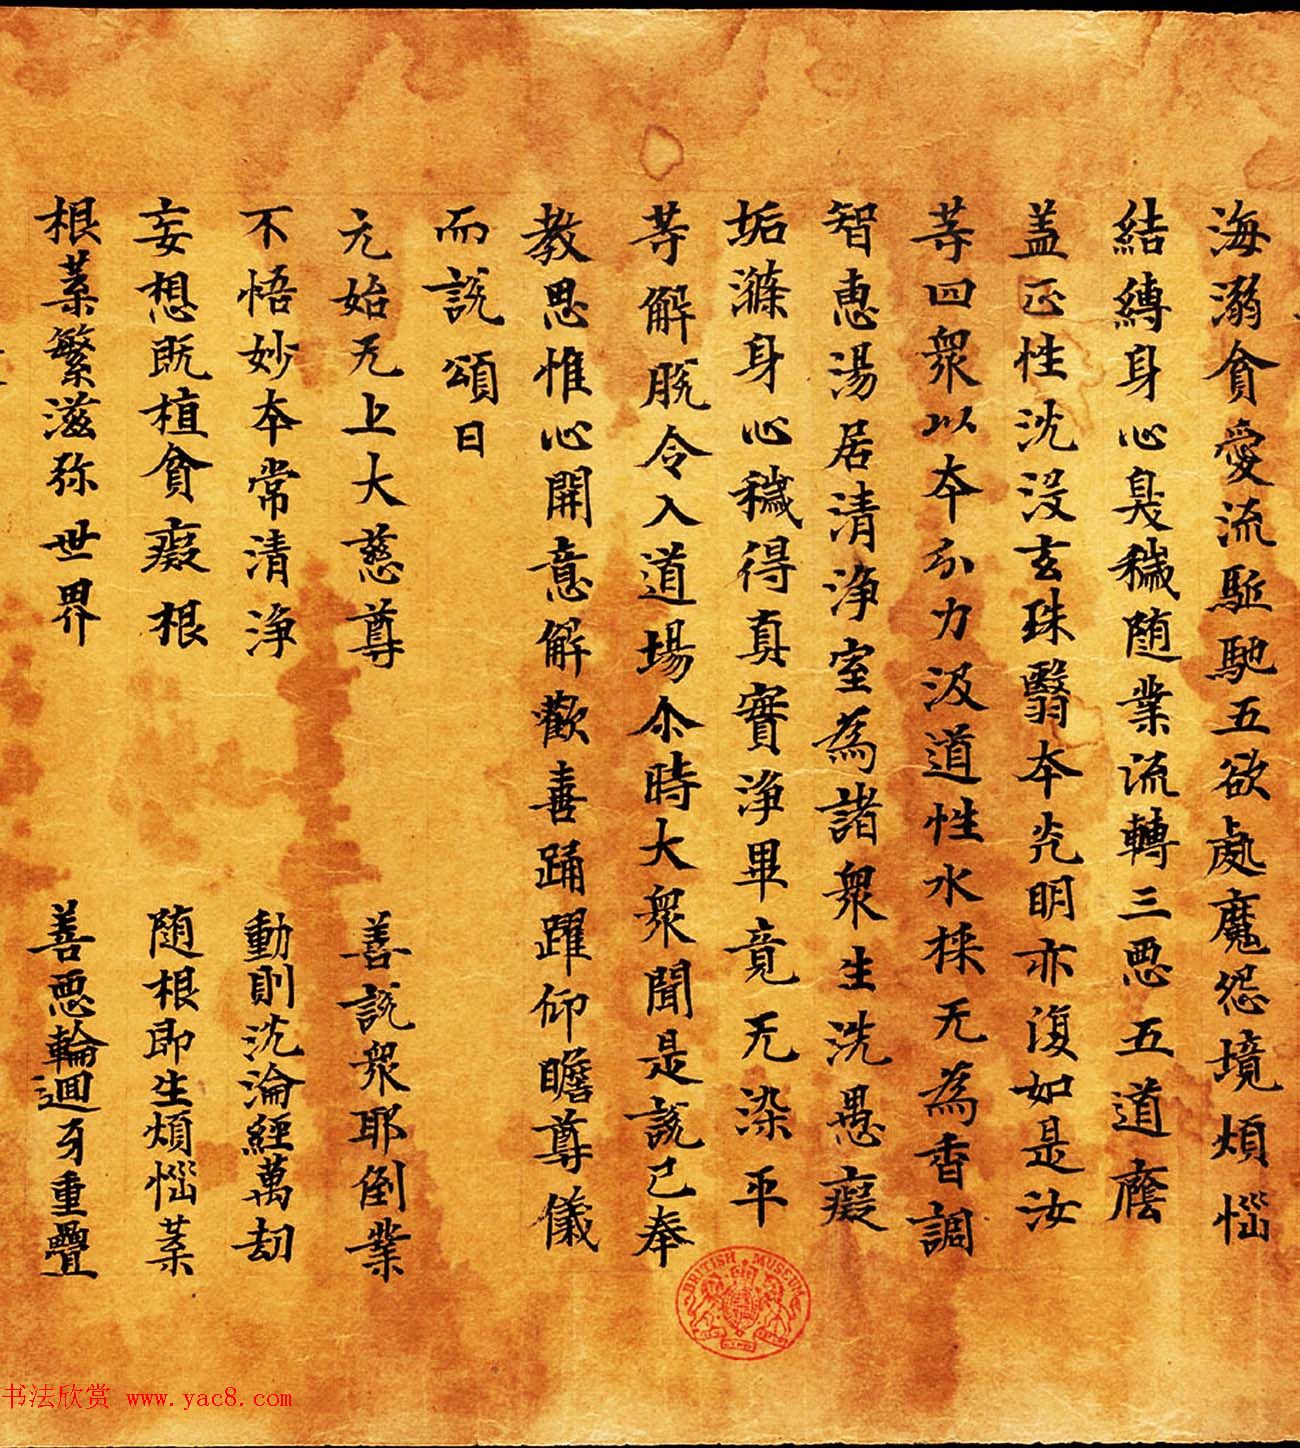 海溺貪愛流駈馳五欲處魔怨境煩惱
結縛身心臭穢随業流轉三惡五道廕
盖正性沈没玄珠翳夲光明亦復如是汝
等四衆以夲分力汲道性水採无為香調
智恵湯居清浄室為諸衆生洗愚癡
垢滌身心穢得真實浄畢竟无染平
等解脫令入道場尒時大衆聞是說已奉
教思惟心開意解歡喜踊躍仰瞻尊儀
而說頌曰
元始无上大慈尊 善說衆耶倒業
不悟妙夲常清浄 動則沈淪經萬劫
妄想既植貪癡根 随根即生煩惱葉
根葉繁滋弥世界 善惡輪迴牙重疊
BRITISH MUSEUM
书法欣赏 www.yac8.com